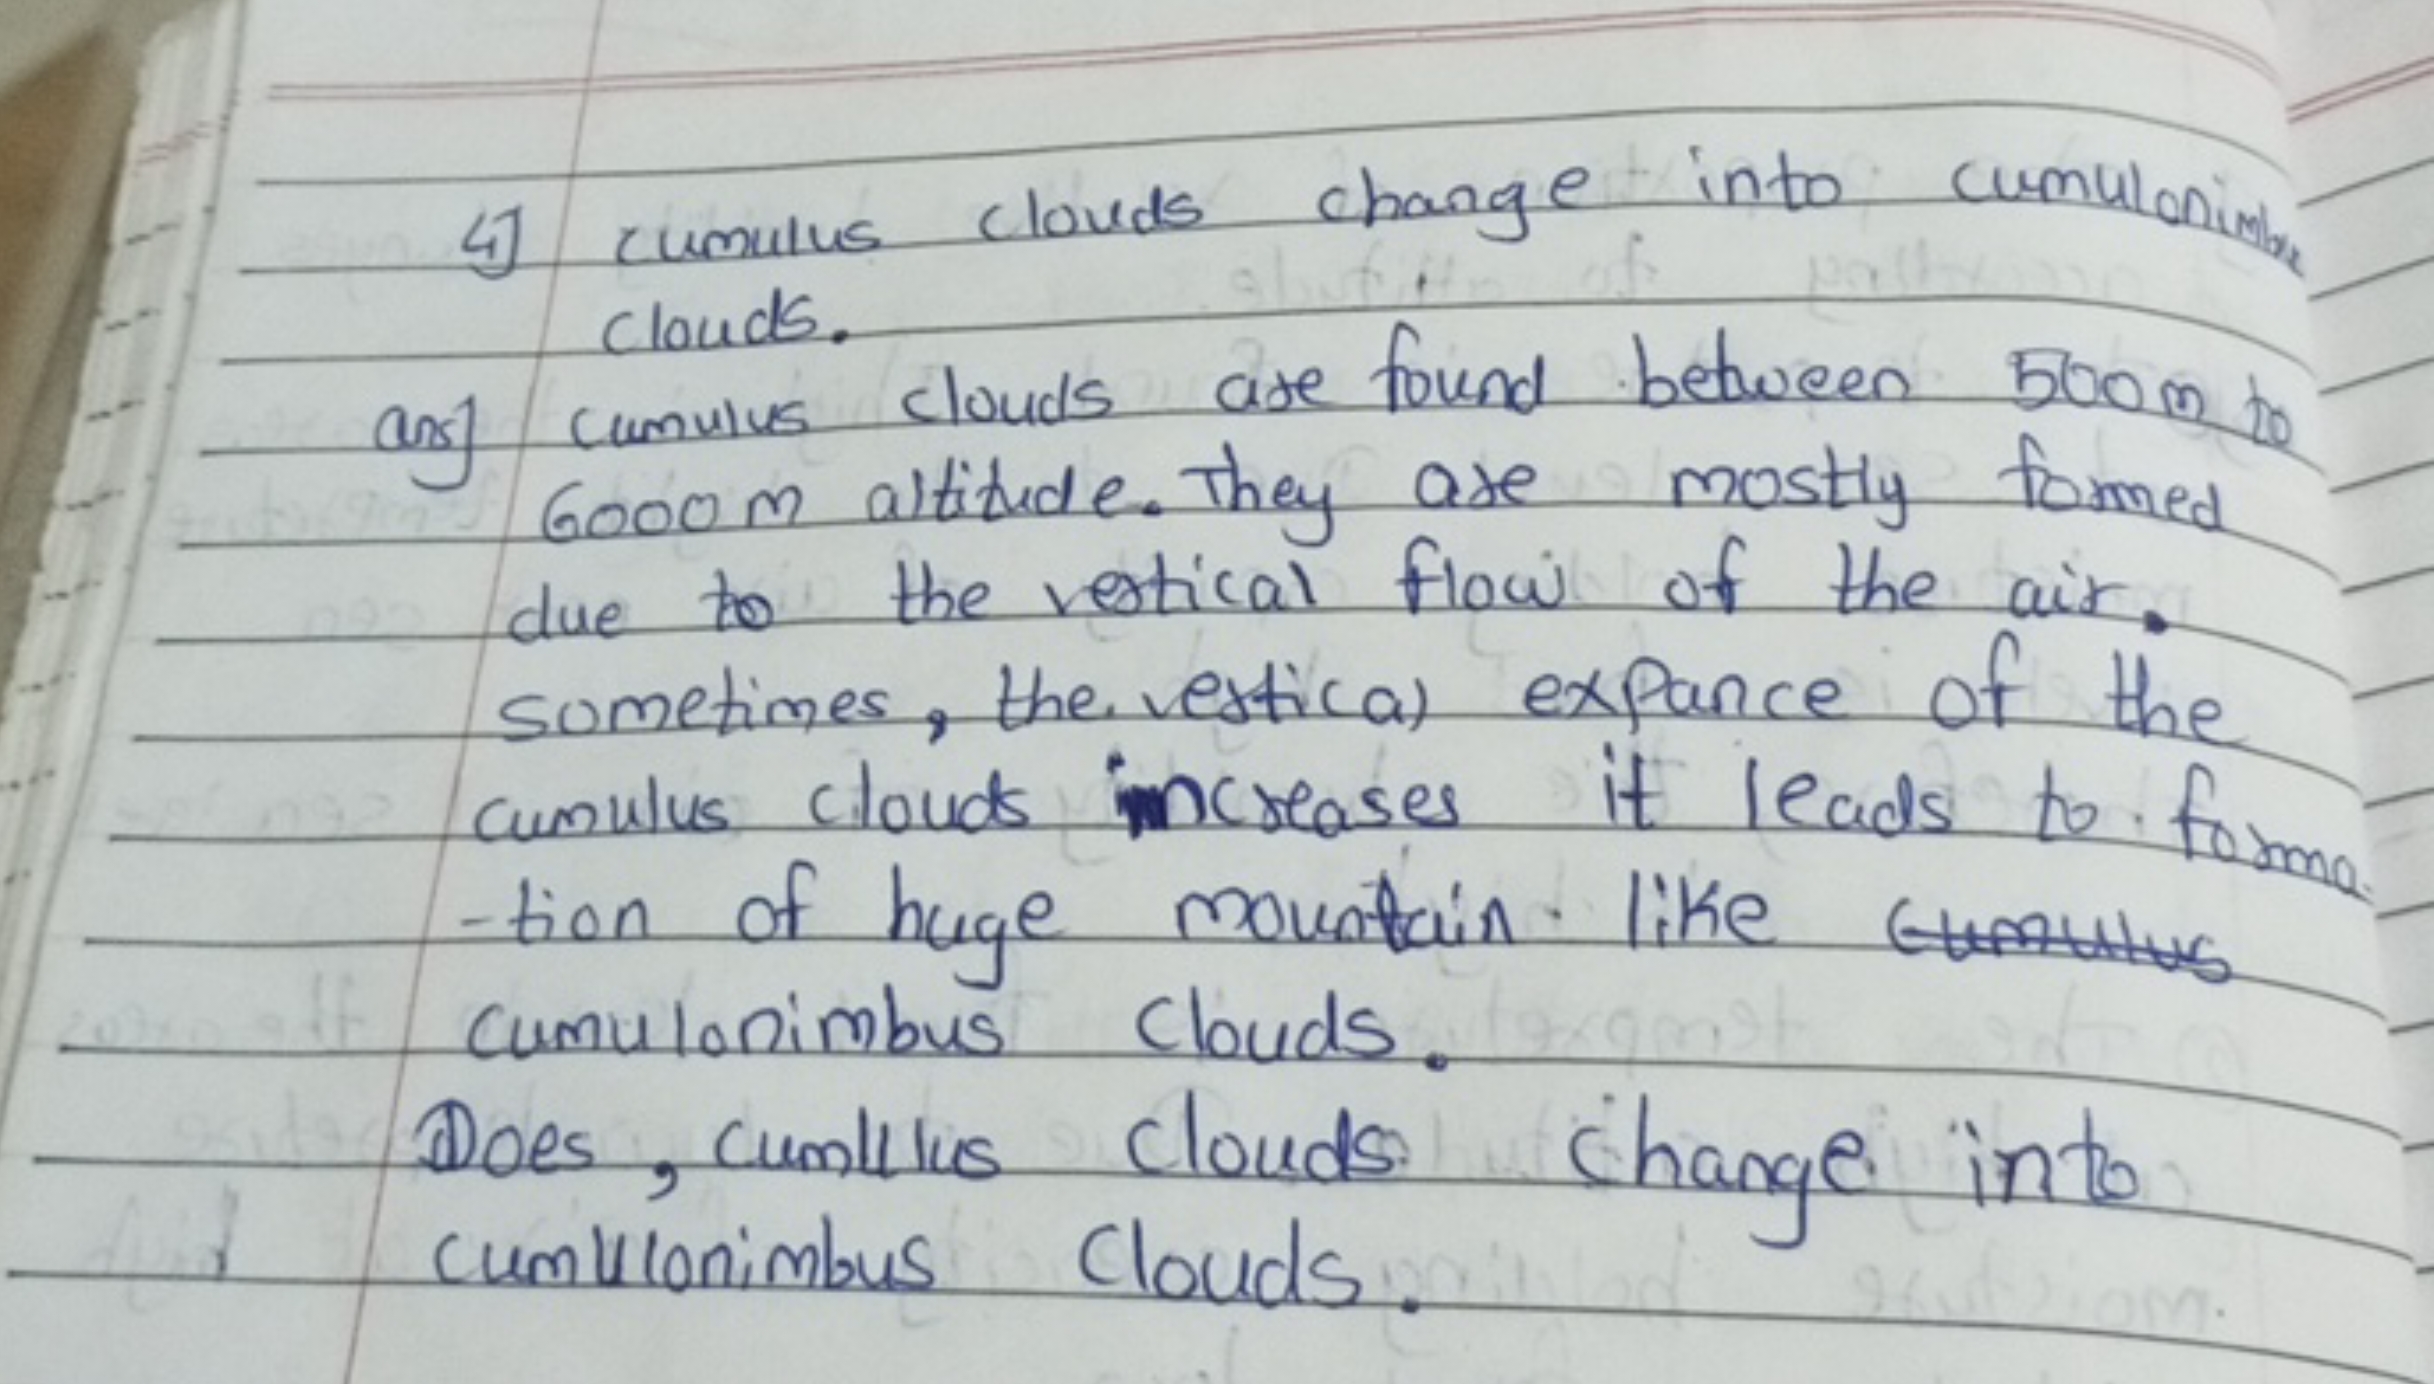 4] cumulus clouds change into cumulonimbus
clouds.
ans] cumulus clouds are found between 500m to
6000m altitude. They are mostly formed
due to the vertical flow of the air.
sometimes, the vertical expance of the
cumulus clouds increases it leads to forma-
-tion of huge mountain like cumulus
cumulonimbus clouds.
Does, cumulus clouds change into
cumulonimbus clouds.